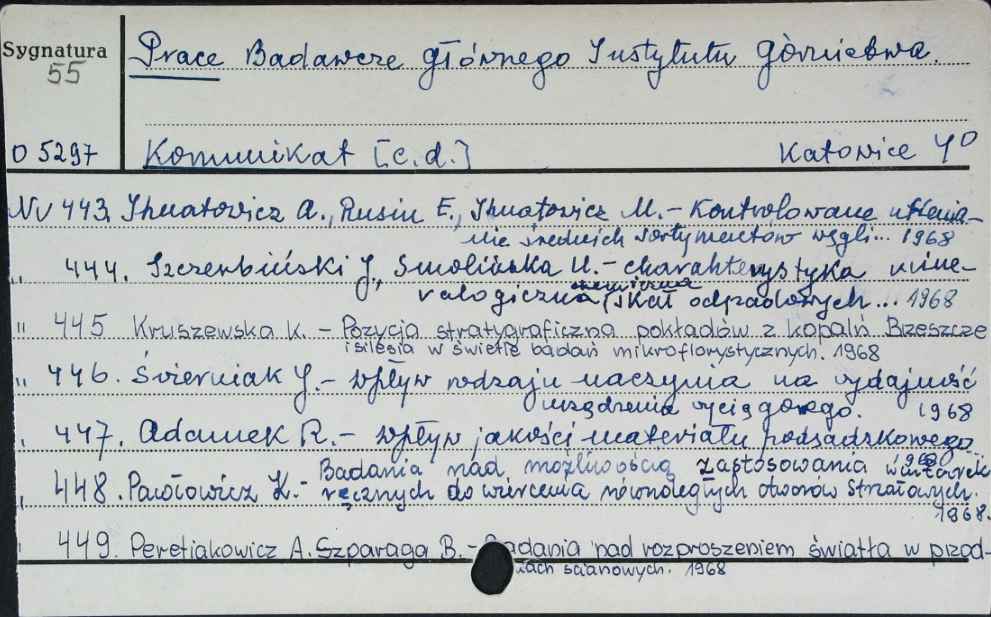 Sygnatura
55
Prace Badawcze Głównego Instytutu Górnictwa.
D 5297
Komunikat [c.d.]
Katowice 4°
Nr 443. Ihnatowicz A., Rusin E., Ihnatowicz M. - Kontrolowane utlenia-
nie średnich sortymentów węgli... 1968
" 444. Szczerbiński J., Smolińska U. - charakterystyka mine-
ralogiczna, chemiczna skał odpadowych... 1968
" 445 Kruszewska K. - Pozycja stratygraficzna pokładów z kopalń Brzeszcze
i silesia w świetle badań mikroflorystycznych. 1968
" 446. Świerniak J. - wpływ rodzaju naczynia na wydajność
urządzenia wyciągowego. 1968
" 447. Adamek R. - wpływ jakości materiału podsadzkowego
1968
" 448. Pawłowicz K. - Badania nad możliwością zastosowania wiertarek
ręcznych do wiercenia równoległych otworów strzałowych.
1968.
" 449. Peretiakowicz A. Szparaga B. - Badania nad rozproszeniem światła w przod-
kach scianowych. 1968